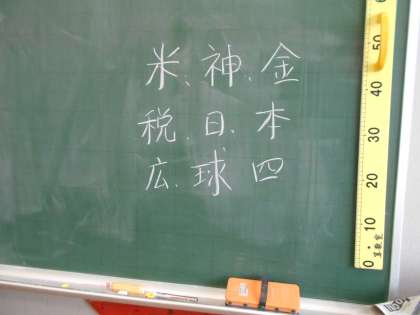 米、神、金
税、日、本
広、球、四
50
40
30
20
10
0